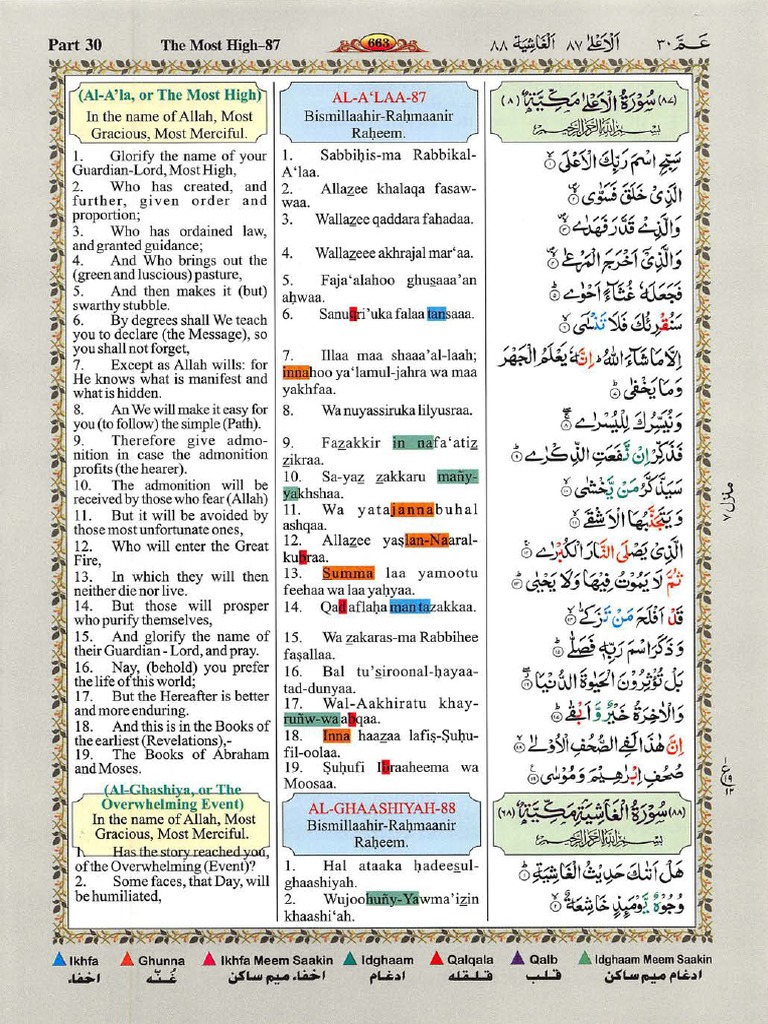 Part 30
The Most High-87
663
اَلْاَعْلٰى ٨٧ اَلْغَاشِيَة ٨٨
عَمَّ ٣٠
(Al-A'la, or The Most High)
In the name of Allah, Most
Gracious, Most Merciful.
1. Glorify the name of your
Guardian-Lord, Most High,
2. Who has created, and
further, given order and
proportion;
3. Who has ordained law,
and granted guidance;
4. And Who brings out the
(green and luscious) pasture,
5. And then makes it (but)
swarthy stubble.
6. By degrees shall We teach
you to declare (the Message), so
you shall not forget,
7. Except as Allah wills: for
He knows what is manifest and
what is hidden.
8. An We will make it easy for
you (to follow) the simple (Path).
9. Therefore give admo-
nition in case the admonition
profits (the hearer).
10. The admonition will be
received by those who fear (Allah)
11. But it will be avoided by
those most unfortunate ones,
12. Who will enter the Great
Fire,
13. In which they will then
neither die nor live.
14. But those will prosper
who purify themselves,
15. And glorify the name of
their Guardian - Lord, and pray.
16. Nay, (behold) you prefer
the life of this world;
17. But the Hereafter is better
and more enduring.
18. And this is in the Books of
the earliest (Revelations),-
19. The Books of Abraham
and Moses.
(Al-Ghashiya, or The
Overwhelming Event)
In the name of Allah, Most
Gracious, Most Merciful.
1. Has the story reached you,
of the Overwhelming (Event)?
2. Some faces, that Day, will
be humiliated,
AL-A‘LAA-87
Bismillaahir-Raḥmaanir
Raḥeem.
1. Sabbiḥis-ma Rabbikal-
A‘laa.
2. Allazee khalaqa fasaw-
waa.
3. Wallazee qaddara fahadaa.
4. Wallazeee akhrajal mar‘aa.
5. Faja‘alahoo ghusaaa’an
aḥwaa.
6. Sanuqri’uka falaa tansaaa.
7. Illaa maa shaaa’al-laah;
innahoo ya‘lamul-jahra wa maa
yakhfaa.
8. Wa nuyassiruka lilyusraa.
9. Fazakkir in nafa‘atiz
zikraa.
10. Sa-yaz zakkaru mañy-
yakhshaa.
11. Wa yatajannabuhal
ashqaa.
12. Allazee yaṣlan-Naaral-
kubraa.
13. Summa laa yamootu
feehaa wa laa yaḥyaa.
14. Qad aflaḥa man tazakkaa.
15. Wa zakaras-ma Rabbihee
faṣallaa.
16. Bal tu’siroonal-ḥayaa-
tad-dunyaa.
17. Wal-Aakhiratu khay-
ruñw-wa abqaa.
18. Inna haazaa lafiṣ-Ṣuḥu-
fil-oolaa.
19. Ṣuḥufi Ibraaheema wa
Moosaa.
AL-GHAASHIYAH-88
Bismillaahir-Raḥmaanir
Raḥeem.
1. Hal ataaka ḥadeesul-
ghaashiyah.
2. Wujoohuñy-Yawma’izin
khaashi‘ah.
(٨٧) سُوْرَةُ الْاَعْلٰى مَكِّيَّةٌ (٨)
بِسْمِ اللّٰهِ الرَّحْمٰنِ الرَّحِيْمِ
سَبِّحِ اسْمَ رَبِّكَ الْاَعْلَى ۙ١
الَّذِيْ خَلَقَ فَسَوّٰى ۙ٢
وَالَّذِيْ قَدَّرَ فَهَدٰى ۙ٣
وَالَّذِيْٓ اَخْرَجَ الْمَرْعٰى ۙ٤
فَجَعَلَهٗ غُثَآءً اَحْوٰى ۭ٥
سَنُقْرِئُكَ فَلَا تَنْسٰٓى ۙ٦
اِلَّا مَا شَآءَ اللّٰهُ ۭ اِنَّهٗ يَعْلَمُ الْجَهْرَ
وَمَا يَخْفٰى ۭ٧
وَنُيَسِّرُكَ لِلْيُسْرٰى ۚ٨
فَذَكِّرْ اِنْ نَّفَعَتِ الذِّكْرٰى ۭ٩
سَيَذَّكَّرُ مَنْ يَّخْشٰى ۙ١٠
وَيَتَجَنَّبُهَا الْاَشْقَى ۙ١١
الَّذِيْ يَصْلَى النَّارَ الْكُبْرٰى ۚ١٢
ثُمَّ لَا يَمُوْتُ فِيْهَا وَلَا يَحْيٰى ۭ١٣
قَدْ اَفْلَحَ مَنْ تَزَكّٰى ۙ١٤
وَذَكَرَ اسْمَ رَبِّهٖ فَصَلّٰى ۭ١٥
بَلْ تُؤْثِرُوْنَ الْحَيٰوةَ الدُّنْيَا ۖ١٦
وَالْاٰخِرَةُ خَيْرٌ وَّاَبْقٰى ۭ١٧
اِنَّ هٰذَا لَفِي الصُّحُفِ الْاُوْلٰى ۙ١٨
صُحُفِ اِبْرٰهِيْمَ وَمُوْسٰى ۧ١٩
(٨٨) سُوْرَةُ الْغَاشِيَةِ مَكِّيَّةٌ (٦٨)
بِسْمِ اللّٰهِ الرَّحْمٰنِ الرَّحِيْمِ
هَلْ اَتٰىكَ حَدِيْثُ الْغَاشِيَةِ ۭ١
وُجُوْهٌ يَّوْمَئِذٍ خَاشِعَةٌ ۙ٢
منزل ٧
ع ١٩ ١٢
Ikhfa Ghunna Ikhfa Meem Saakin Idghaam Qalqala Qalb Idghaam Meem Saakin
اخفاء غُنّه اخفاء ميم ساكن ادغام قلقله قلب ادغام ميم ساكن